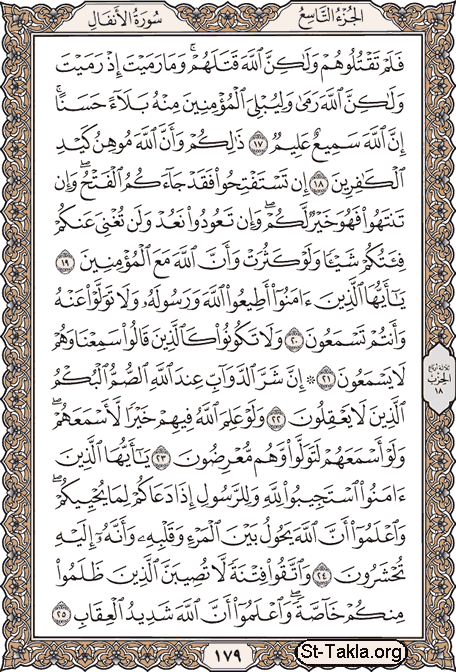 الجُزْءُ التَّاسِعُ
سُورَةُ الأَنفَال
فَلَمْ تَقْتُلُوهُمْ وَلَٰكِنَّ ٱللَّهَ قَتَلَهُمْ ۚ وَمَا رَمَيْتَ إِذْ رَمَيْتَ
وَلَٰكِنَّ ٱللَّهَ رَمَىٰ ۚ وَلِيُبْلِىَ ٱلْمُؤْمِنِينَ مِنْهُ بَلَآءً حَسَنًا ۚ
إِنَّ ٱللَّهَ سَمِيعٌ عَلِيمٌ ١٧ ذَٰلِكُمْ وَأَنَّ ٱللَّهَ مُوهِنُ كَيْدِ
ٱلْكَٰفِرِينَ ١٨ إِن تَسْتَفْتِحُوا۟ فَقَدْ جَآءَكُمُ ٱلْفَتْحُ ۖ وَإِن
تَنتَهُوا۟ فَهُوَ خَيْرٌ لَّكُمْ ۖ وَإِن تَعُودُوا۟ نَعُدْ وَلَن تُغْنِىَ عَنكُمْ
فِئَتُكُمْ شَيْـًٔا وَلَوْ كَثُرَتْ وَأَنَّ ٱللَّهَ مَعَ ٱلْمُؤْمِنِينَ ١٩
يَٰٓأَيُّهَا ٱلَّذِينَ ءَامَنُوٓا۟ أَطِيعُوا۟ ٱللَّهَ وَرَسُولَهُۥ وَلَا تَوَلَّوْا۟ عَنْهُ
وَأَنتُمْ تَسْمَعُونَ ٢٠ وَلَا تَكُونُوا۟ كَٱلَّذِينَ قَالُوا۟ سَمِعْنَا وَهُمْ
لَا يَسْمَعُونَ ٢١ ۞ إِنَّ شَرَّ ٱلدَّوَآبِّ عِندَ ٱللَّهِ ٱلصُّمُّ ٱلْبُكْمُ
ٱلَّذِينَ لَا يَعْقِلُونَ ٢٢ وَلَوْ عَلِمَ ٱللَّهُ فِيهِمْ خَيْرًا لَّأَسْمَعَهُمْ ۖ
وَلَوْ أَسْمَعَهُمْ لَتَوَلَّوا۟ وَّهُم مُّعْرِضُونَ ٢٣ يَٰٓأَيُّهَا ٱلَّذِينَ
ءَامَنُوا۟ ٱسْتَجِيبُوا۟ لِلَّهِ وَلِلرَّسُولِ إِذَا دَعَاكُمْ لِمَا يُحْيِيكُمْ ۖ
وَٱعْلَمُوٓا۟ أَنَّ ٱللَّهَ يَحُولُ بَيْنَ ٱلْمَرْءِ وَقَلْبِهِۦ وَأَنَّهُۥٓ إِلَيْهِ
تُحْشَرُونَ ٢٤ وَٱتَّقُوا۟ فِتْنَةً لَّا تُصِيبَنَّ ٱلَّذِينَ ظَلَمُوا۟
مِنكُمْ خَآصَّةً ۖ وَٱعْلَمُوٓا۟ أَنَّ ٱللَّهَ شَدِيدُ ٱلْعِقَابِ ٢٥
ثلاثة أرباع
الحزب
١٨
١٧٩
St-Takla.org